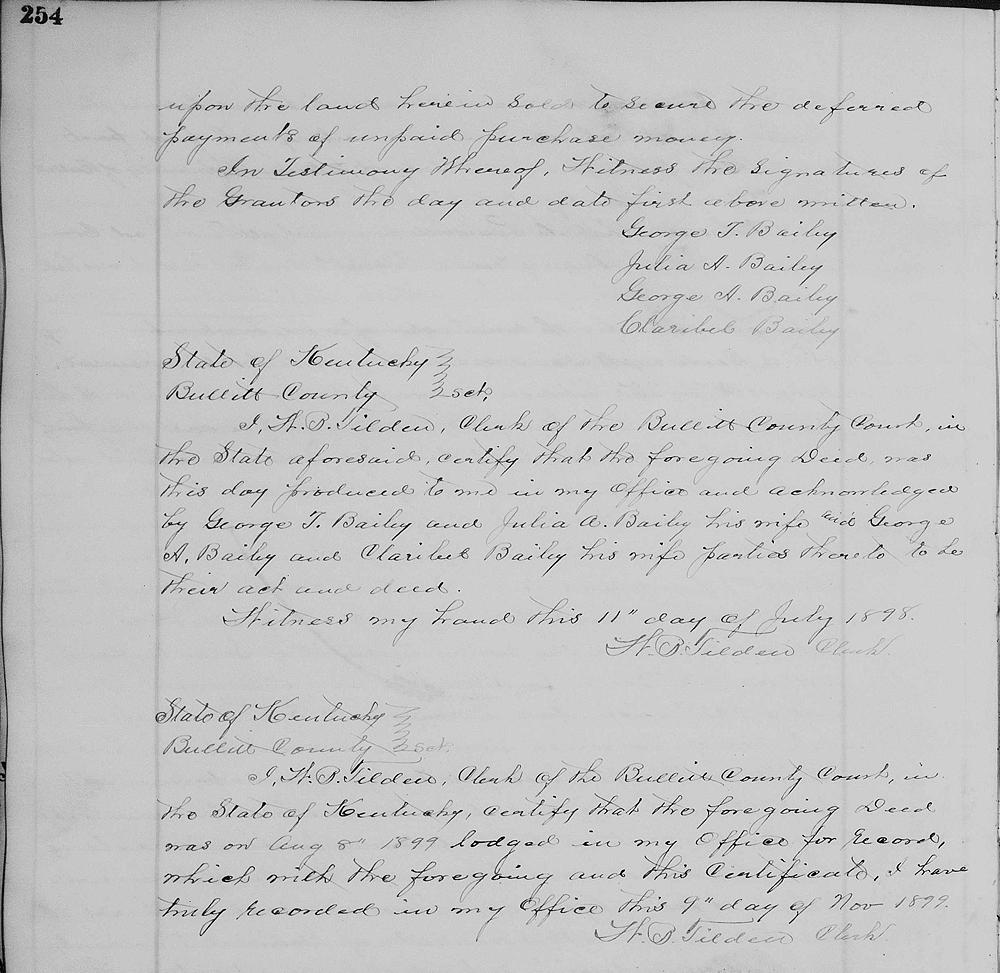 254
upon the land herein sold to secure the deferred
payments of unpaid purchase money.
In Testimony Whereof, Witness the signatures of
the Grantors the day and date first above written.
George T. Bailey
Julia A. Bailey
George A. Bailey
Claribel Bailey
State of Kentucky
Bullitt County sct,
I, W. P. Tilden, Clerk of the Bullitt County Court, in
the State aforesaid, certify that the foregoing Deed, was
this day produced to me in my Office and acknowledged
by George T. Bailey and Julia A. Bailey his wife and George
A. Bailey and Claribel Bailey his wife parties thereto to be
their act and deed.
Witness my hand this 11" day of July 1898.
W. P. Tilden Clerk.
State of Kentucky
Bullitt County sct.
I, W. P. Tilden, Clerk of the Bullitt County Court, in
the State of Kentucky, certify that the foregoing Deed
was on Aug 8" 1899 lodged in my Office for record,
which with the foregoing and this Certificate, I have
truly recorded in my Office this 9" day of Nov 1899.
W. P. Tilden Clerk.